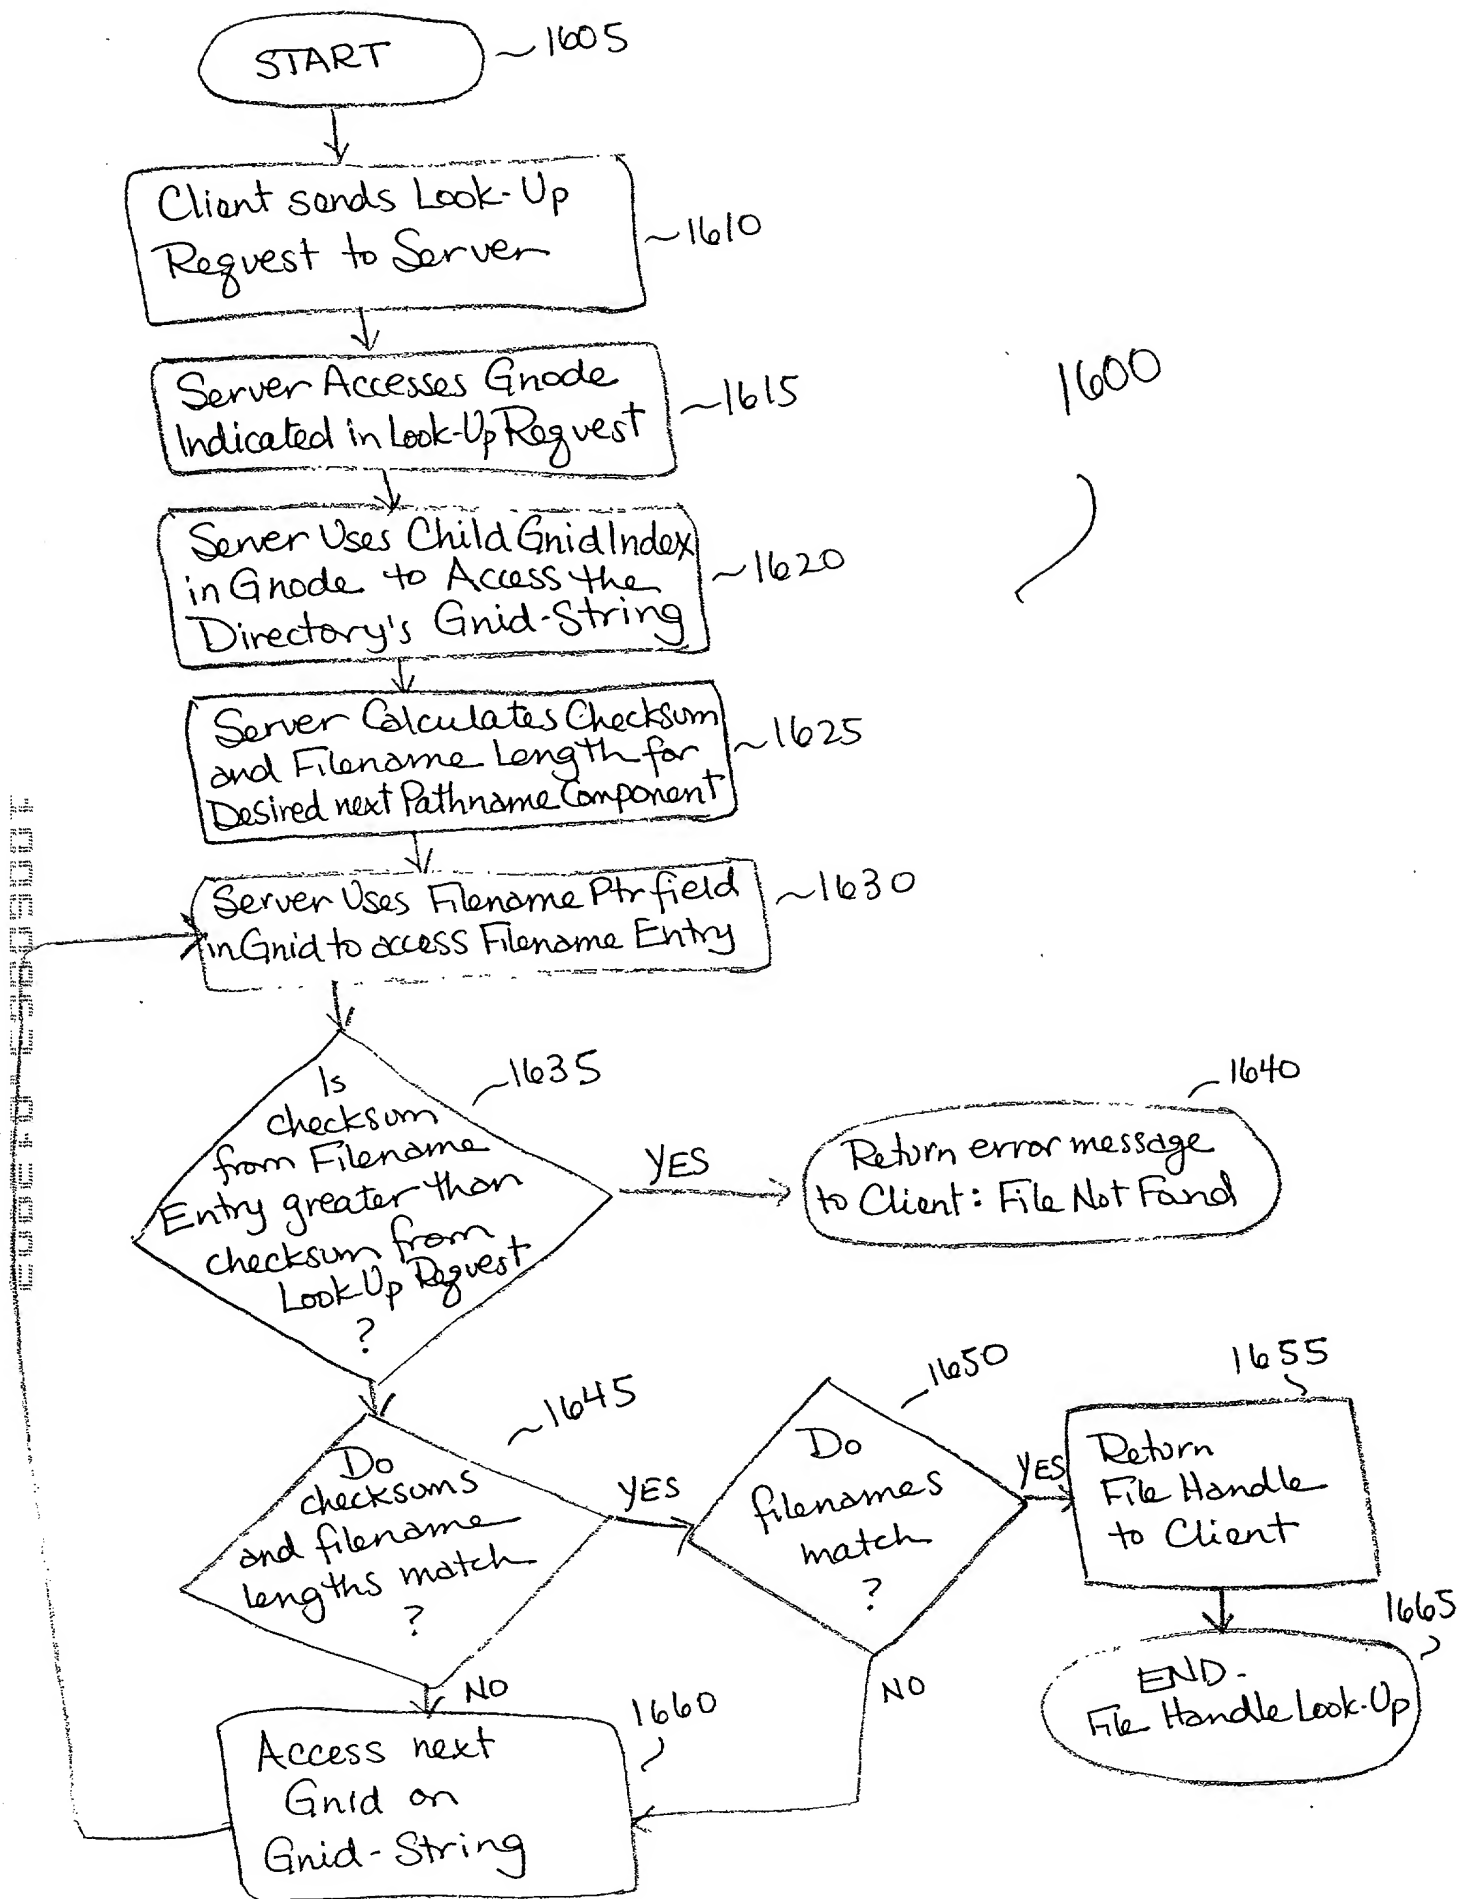 START
~1605
Client sends Look-Up
Request to Server
~1610
Server Accesses Gnode
Indicated in Look-Up Request
~1615
1600
Server Uses Child Gnid Index
in Gnode to Access the
Directory's Gnid-String
~1620
Server Calculates Checksum
and Filename Length for
Desired next Pathname Component
~1625
Server Uses Filename Ptr field
in Gnid to access Filename Entry
~1630
Is
checksum
from Filename
Entry greater than
checksum from
Look-Up Request
?
1635
YES
1640
Return error message
to Client: File Not Found
Do
checksums
and filename
lengths match
?
~1645
YES
NO
1650
Do
filenames
match
?
YES
NO
1655
Return
File Handle
to Client
1665
END-
File Handle Look-Up
1660
Access next
Gnid on
Gnid-String